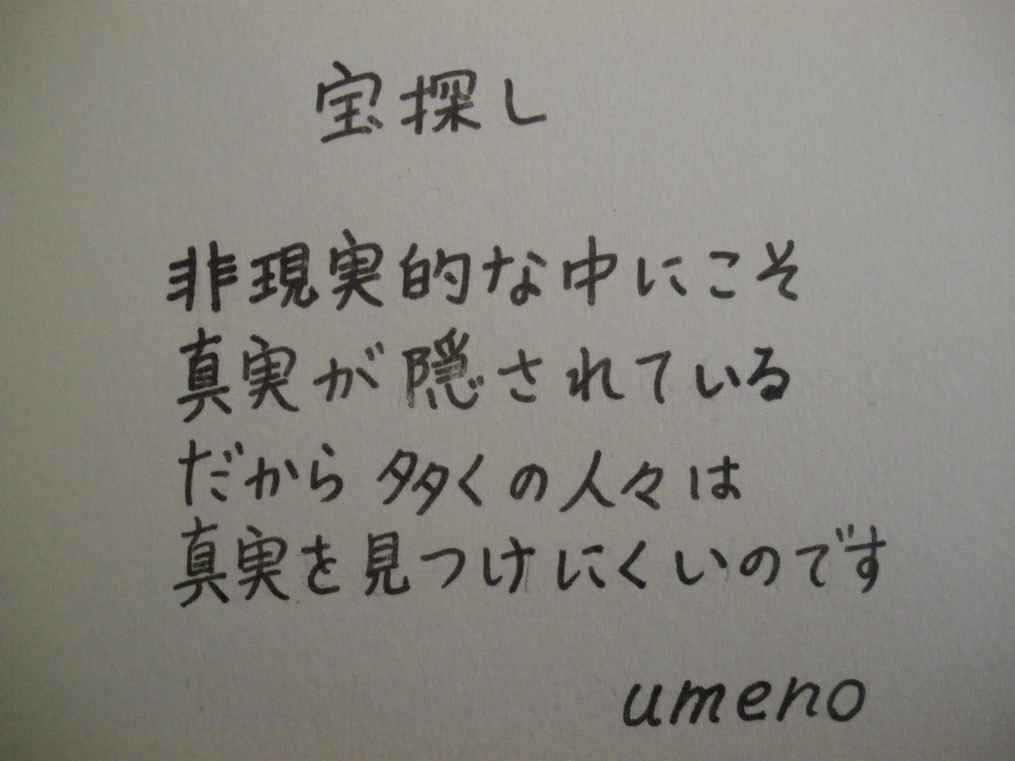 宝探し
非現実的な中にこそ
真実が隠されている
だから多くの人々は
真実を見つけにくいのです
umeno